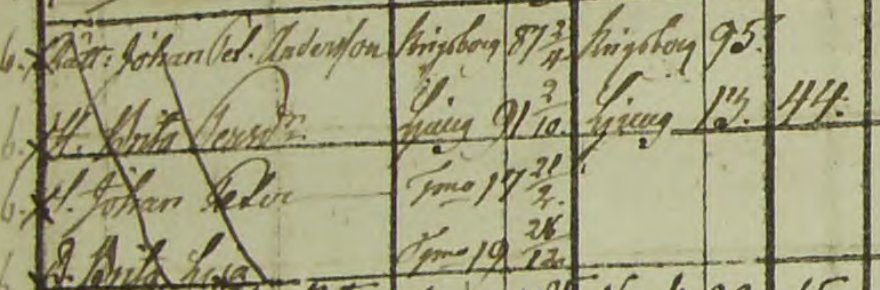 6. Rätt: Johan Pet. Andersson Ringsborg 87 3/4 Ringsborg 95.
6. H. Brita Persdr. Ljung 91 2/10. Ljung 13. 44.
6. S. Johan Peter Tmo 17 21/2.
D. Brita Lisa Tmo 19 26/12